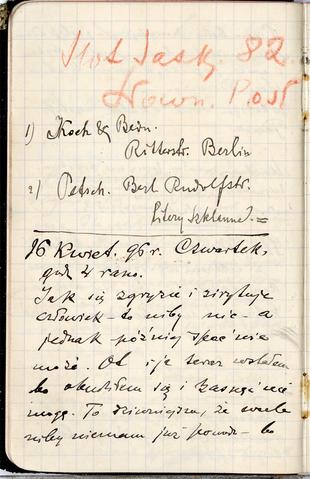 Hot Jask. 82
Nown. Post
1) Koch & Bedn.
Ritterstr. Berlin
2) Petsch. Berl Rudolfstr.
litery szklanne =
16 Kwiet. 96 r. Czwartek,
godz 4 rano.
Jak się zgryzie i zirytuje
człowiek - to niby nic - a
jednak później spać nie
może. Ot i ja teraz
bo obudziłem się i zasnąć nie
mogę. To dziwniejsze, że wcale
niby niemam już powod- bo